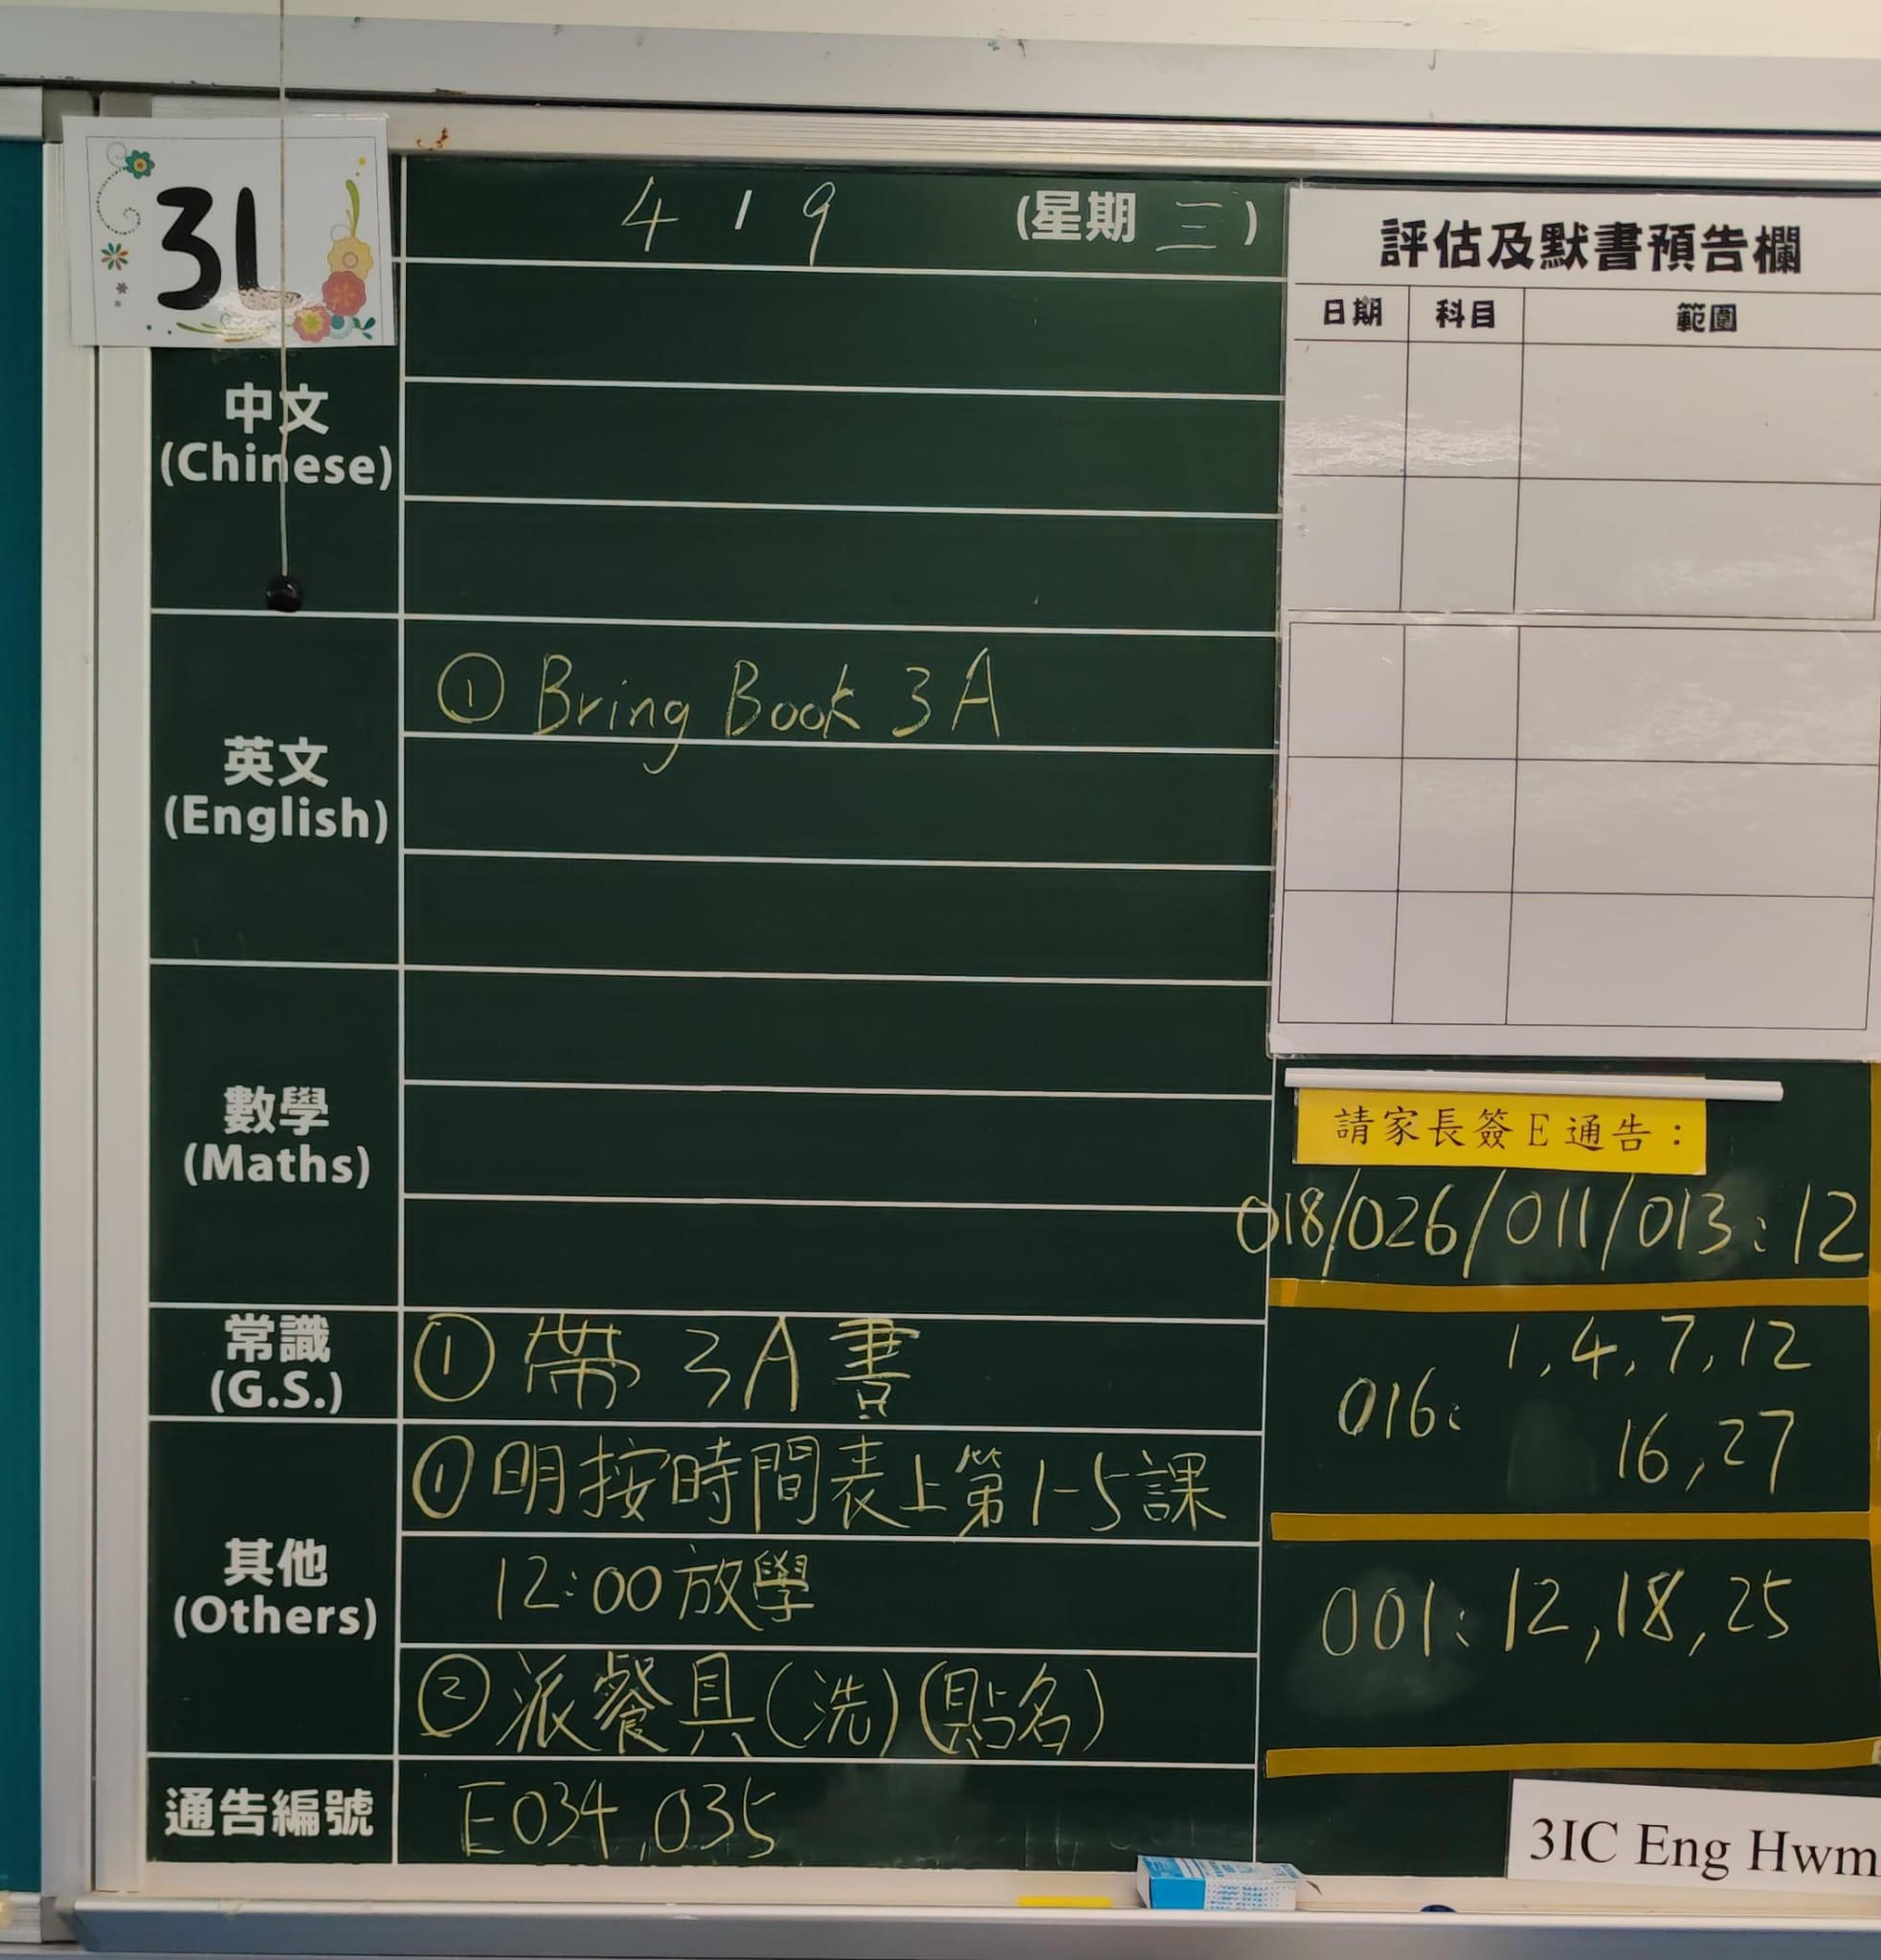 3L
4 / 9 (星期 三)
中文
(Chinese)
英文
(English)
① Bring Book 3A
數學
(Maths)
常識
(G.S.)
① 帶 3A 書
其他
(Others)
① 明按時間表上第1-5課
12:00 放學
② 派餐具(洗)(貼名)
通告編號
E034,035
評估及默書預告欄
日期 科目 範圍
請家長簽E通告:
018/026/011/013:12
016: 1,4,7,12
16,27
001: 12,18,25
3IC Eng Hwm